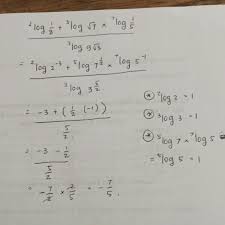 ²log 1/8 + ⁵log √7 × ⁷log 1/5
³log 9√3
= ²log 2⁻³ + ⁵log 7^½ × ⁷log 5⁻¹
³log 3^(5/2)
= -3 + (½ (-1))
5/2
= -3 - 1/2
5/2
= -7/2 × 2/5 = -7/5.
* ²log 2 = 1
* ³log 3 = 1
* ⁵log 7 × ⁷log 5
= ⁵log 5 = 1